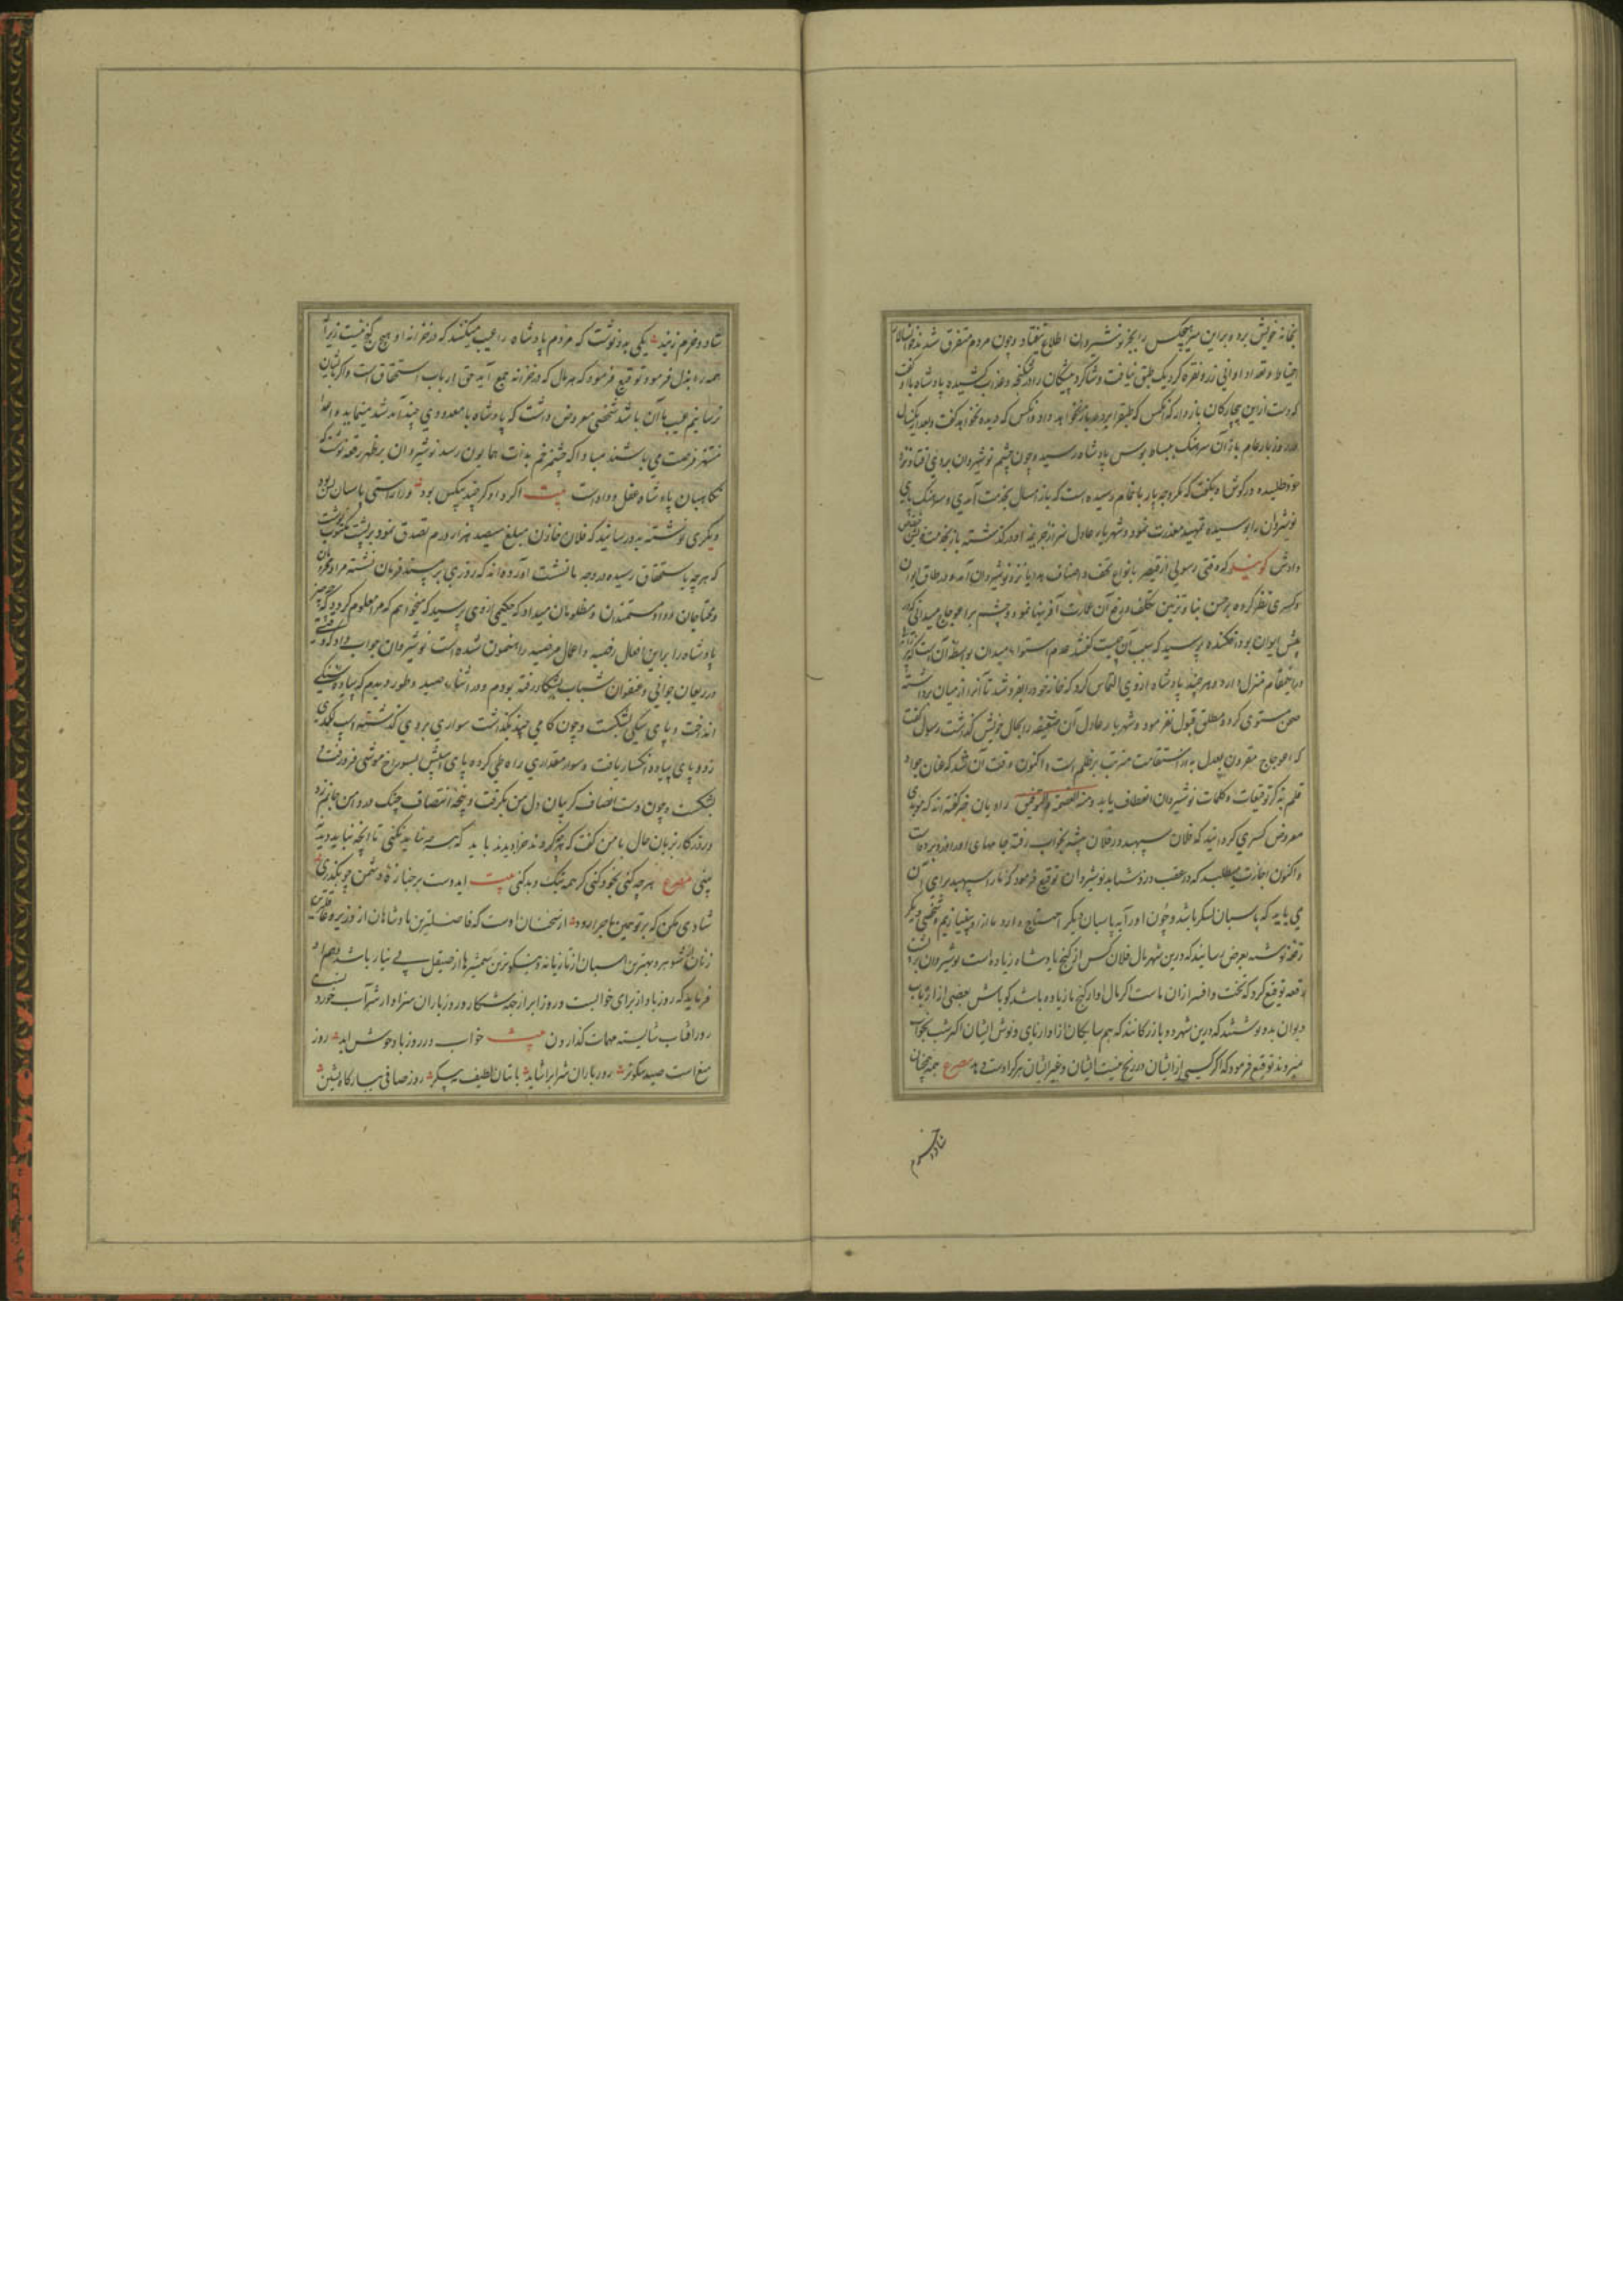 بخانه خویش برد و براین سر هیچکس را بجز نوشیروان اطلاع نیفتاد و چون مردم متفرق شدند خوانسالار
احتیاط و تعداد اوانی زر و نقره کرد یک طبق نیافت و شاگرد پیشگان را در شکنجه و عذاب کشیده پادشاه با او گفت
که دست ازین بیچارگان بازدار که آنکس که طبق را برد باز نخواهد داد و آنکس که دیده نخواهد گفت و بعد از یکسال
در روز بار عام باز آن سرهنگ ببساط بوس پادشاه رسید و چون چشم نوشیروان بروی افتاد نزد
خود طلبیده در گوش او بگفت که مگر وجه پار باتمام رسیده است که باز امسال بخدمت آمدی و سرهنگ پای
نوشیروان را بوسیده تمهید معذرت نمود و شهریار عادل از سر جریمه او در گذشته باز بخدمت
دادش گویند که وقتی رسولی از قیصر بانواع تحف و اصناف هدایا نزد نوشیروان آمد و در طاق ایوان
کسری نظر کرده بر حسن بنا و تزیین تکلف و رفع آن عمارت آفرینها نمود و چشم بر اعوجاج میدانی که در
پیش ایوان بود افکنده پرسید که سبب آن چیست گفتند عدم استواء میدان بواسطه آن است که پیرزنی
درین مقام منزل دارد و هر چند پادشاه از وی التماس کرد که خانه خود را بفروشد تا آنرا از میان برداشته
صحن مستوی گردد مطلق قبول نفرمود و شهریار عادل آن ضعیفه را بحال خویش گذاشت رسول گفت
که اعوجاج مقرون بعدل به از استقامت مترتب بر ظلم است اکنون وقت آن شد که عنان جواد
قلم بذکر توقیعات و کلمات نوشیروان انعطاف یابد و منه العصمة و التوفیق راویان خبر گفته اند که موبدی
معروض کسری گردانید که فلان سپهبد در فلان بیشه بخواب رفته جامهای او را دزد برده است
و اکنون اجازت میطلبد که در عقب دزد شتابد نوشیروان توقیع فرمود که ما را سپهبد برای آن
می باید که پاسبان لشکر باشد و چون او را به پاسبان دیگر احتیاج دارد ما از او بی نیازیم شخصی دیگر
رقعه نوشته بعرض رسانید که درین شهر مال فلان کس از گنج پادشاه زیاده است نوشیروان بر پشت
رقعه توقیع کرد که تخت و افسر از ان ماست اگر مال او از گنج ما زیاده باشد گو باش بعضی از ارباب
دیوان بدو نوشتند که درین شهر دو بازرگانند که همسایگان از آواز نای و نوش ایشان اکثر شب بخواب
میروند توقیع فرمود که اگر کسی از ایشان در رنج نیست ایشان و غیر ایشان هر که راست مصرع همه همچنان
شاد و خرم
شاد و خرم زیند یکی بدو نوشت که مردم پادشاه را عیب میکنند که در خزانه او هیچ گنج نیست زیرا
همه را بذل فرمود توقیع فرمود که هر مال که در خزانه جمع آید حق ارباب استحقاق است و اگر بایشان
نرسانیم عیب ما آن باشد شخصی معروض داشت که پادشاه با معدودی چند آمد شد مینماید و اعدا
منتهز فرصت می باشند مبادا که چشم زخم بذات همایون رسد نوشیروان بر ظهر رقعه نوشت که
نگاهبان پادشاه عدل و داد است بیت اگر داد گر چند بیکس بود ورا راستی پاسبان بس بود
دیگری نوشته بدو رسانید که فلان خازن مبلغ سیصد هزار درم تصدق نمود بر پشت مکتوب نوشت
که هر چه باستحقاق رسیده در وجه ما نشست آورده اند که روزی بر مسند فرمان نشسته مراد محرومان
و محتاجان و داد مستمندان و مظلومان میداد که حکیمی از وی پرسید که میخواهم که مرا معلوم گردد که چه چیز
پادشاه را براین افعال رضیه و اعمال مرضیه راهنمون شده است نوشیروان جواب داد که وقتی
در ریعان جوانی و عنفوان شباب بشکار رفته بودم و در اثناء صید و طور دیدم که پیاده سنگی
انداخت و پای سگی بشکست و چون گامی چند بگذشت سواری بروی گذشته اسب لگدی
زد و پای پیاده انکسار یافت و سوار مقداری راه طی کرده پای اسبش بسوراخ موشی فرو رفت
بشکست و چون دست انصاف گریبان دل من بگرفت و پنجه انتصاف چنگ در دامن جانم زد
و روزگار بزبان حال با من گفت که هر چه کردند جزا دیدند باید که هر چه نباید نکنی تا آنچه نباید دید
نبینی مصرع هر چه کنی بخود کنی گر همه نیک و بد کنی بیت ای دوست بر جنازه دشمن چو بگذری
شادی مکن که بر تو همین ماجرا رود از سخنان اوست که فاضلترین پادشاهان از وزیر و عاقلترین
زنان از شوهر و بهترین اسبان از تازیانه و نیکوترین شمشیرها از صیقل بی نیاز نباشد و هم او
فرماید که روز باد از برای خوابست و روز ابر از جهة شکار و روز باران سزاوار شراب خوردن
روز آفتاب شایسته مهمات گذاردن بیت خواب در روز باد خوش آید روز
میغ است صید نیکوتر روز باران شراب را شاید با بتان لطیف سیمین بر روز صافی ببارگاه نشین